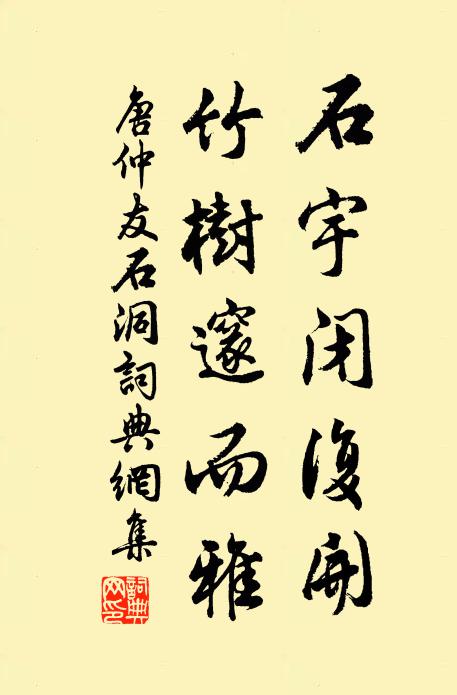 石宇闭復開
竹樹邃而雅
唐仲友石洞詞典網集
詞典網印